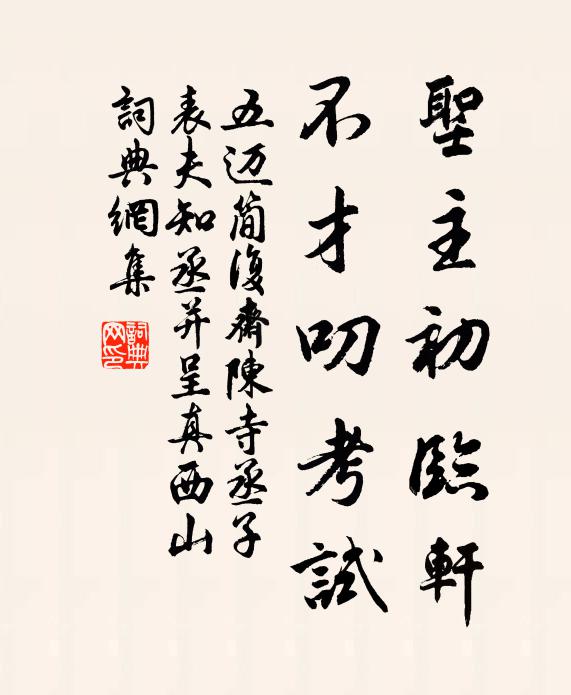 聖主初臨軒
不才叨考試
五迈简復齋陳寺丞子
表夫知丞并呈真西山
詞典網集
詞典网印